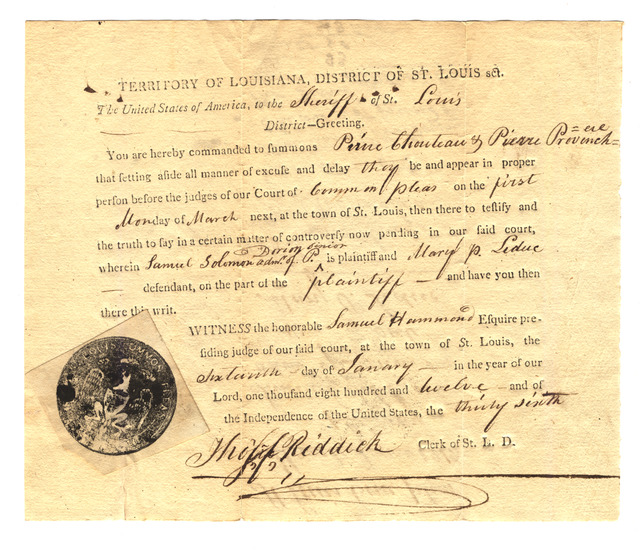 TERRITORY OF LOUISIANA, DISTRICT OF ST. LOUIS sct.
The United States of America, to the Sheriff of St. Louis
District—Greeting.
You are hereby commanded to summons Pierre Chouteau & Pierre Provenchere
that setting aside all manner of excuse and delay they be and appear in proper
person before the judges of our Court of Common pleas on the first
Monday of March next, at the town of St. Louis, then there to testify and
the truth to say in a certain matter of controversy now pending in our said court,
Dorion senior
wherein Samuel Solomon adm. of P. is plaintiff and Mary P. Leduc
defendant, on the part of the plaintiff and have you then
there this writ.
WITNESS the honorable Samuel Hammond Esquire pre-
siding judge of our said court, at the town of St. Louis, the
sixteenth day of January in the year of our
Lord, one thousand eight hundred and twelve and of
the Independence of the United States, the thirty sixth
Thos. F. Riddick Clerk of St. L. D.
ST LOUIS COMMON PLEAS